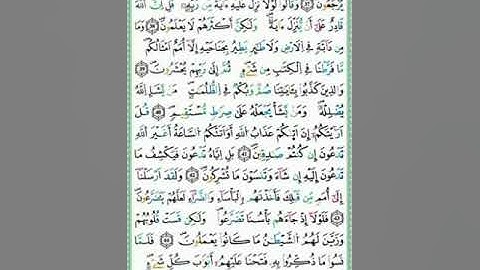 يُرْجَعُونَ وَقَالُوا لَوْلَا نُزِّلَ عَلَيْهِ ءَايَةٌ مِّن رَّبِّهِ قُلْ إِنَّ اَللَّهَ
قَادِرٌ عَلَىٰ أَن يُنَزِّلَ ءَايَةً وَلَٰكِنَّ أَكْثَرَهُمْ لَا يَعْلَمُونَ وَمَا
مِن دَابَّةٍ فِي اِلْأَرْضِ وَلَا طَٰئِرٍ يَطِيرُ بِجَنَاحَيْهِ إِلَّا أُمَمٌ أَمْثَالُكُم
مَّا فَرَّطْنَا فِي اِلْكِتَٰبِ مِن شَيْءٍ ثُمَّ إِلَىٰ رَبِّهِمْ يُحْشَرُونَ
وَالَّذِينَ كَذَّبُوا بِـَٔايَٰتِنَا صُمٌّ وَبُكْمٌ فِي اِلظُّلُمَٰتِ مَنْ يَّشَإِ اِللَّهُ
يُضْلِلْهُ وَمَنْ يَّشَأْ يَجْعَلْهُ عَلَىٰ صِرَٰطٍ مُّسْتَقِيمٍ قُلْ
أَرَٰيْتَكُمُ إِنْ أَتَىٰكُمْ عَذَابُ اُللَّهِ أَوْ أَتَتْكُمُ اُلسَّاعَةُ أَغَيْرَ اَللَّهِ
تَدْعُونَ إِن كُنتُمْ صَٰدِقِينَ بَلْ إِيَّاهُ تَدْعُونَ فَيَكْشِفُ مَا
تَدْعُونَ إِلَيْهِ إِن شَاءَ وَتَنسَوْنَ مَا تُشْرِكُونَ وَلَقَدْ أَرْسَلْنَا
إِلَىٰ أُمَمٍ مِّن قَبْلِكَ فَأَخَذْنَٰهُم بِالْبَأْسَاءِ وَالضَّرَّاءِ لَعَلَّهُمْ يَتَضَرَّعُونَ
فَلَوْلَا إِذْ جَاءَهُم بَأْسُنَا تَضَرَّعُوا وَلَٰكِن قَسَتْ قُلُوبُهُمْ
وَزَيَّنَ لَهُمُ اُلشَّيْطَٰنُ مَا كَانُوا يَعْمَلُونَ فَلَمَّا
نَسُوا مَا ذُكِّرُوا بِهِ فَتَحْنَا عَلَيْهِمْ أَبْوَٰبَ كُلِّ شَيْءٍ